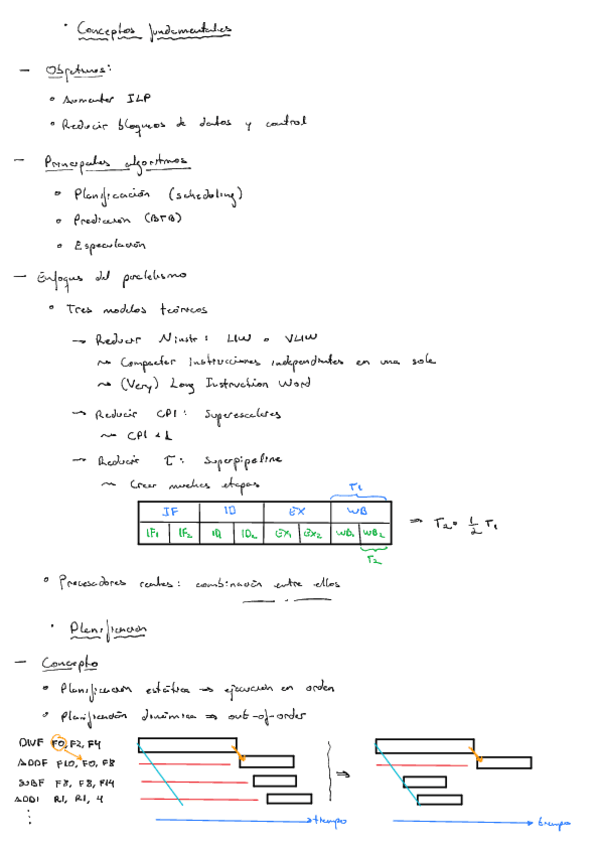 • Conceptos fundamentales
— Objetivos:
• Aumentar ILP
• Reducir bloqueos de datos y control
— Principales algoritmos
• Planificación (scheduling)
• Predicción (BTB)
• Especulación
— Enfoques del paralelismo
• Tres modelos teóricos
→ Reducir Ninstr: LIW o VLIW
↝ Compactar instrucciones independientes en una sola
↝ (Very) Long Instruction Word
→ Reducir CPI: Superescalares
↝ CPI < 1
→ Reducir τ: Superpipeline
↝ Crear muchas etapas
T1
IF ID EX WB
IF1 IF2 ID ID2 EX1 EX2 WB1 WB2 ⇒ T2 = 1/2 T1
T2
• Procesadores reales: combinación entre ellos
• Planificación
— Concepto
• Planificación estática ⇒ ejecución en orden
• Planificación dinámica ⇒ out-of-order
DIVF F0, F2, F4
ADDF F10, F0, F8
SUBF F8, F8, F14 ⇒
ADDI R1, R1, 4
⋮ tiempo tiempo